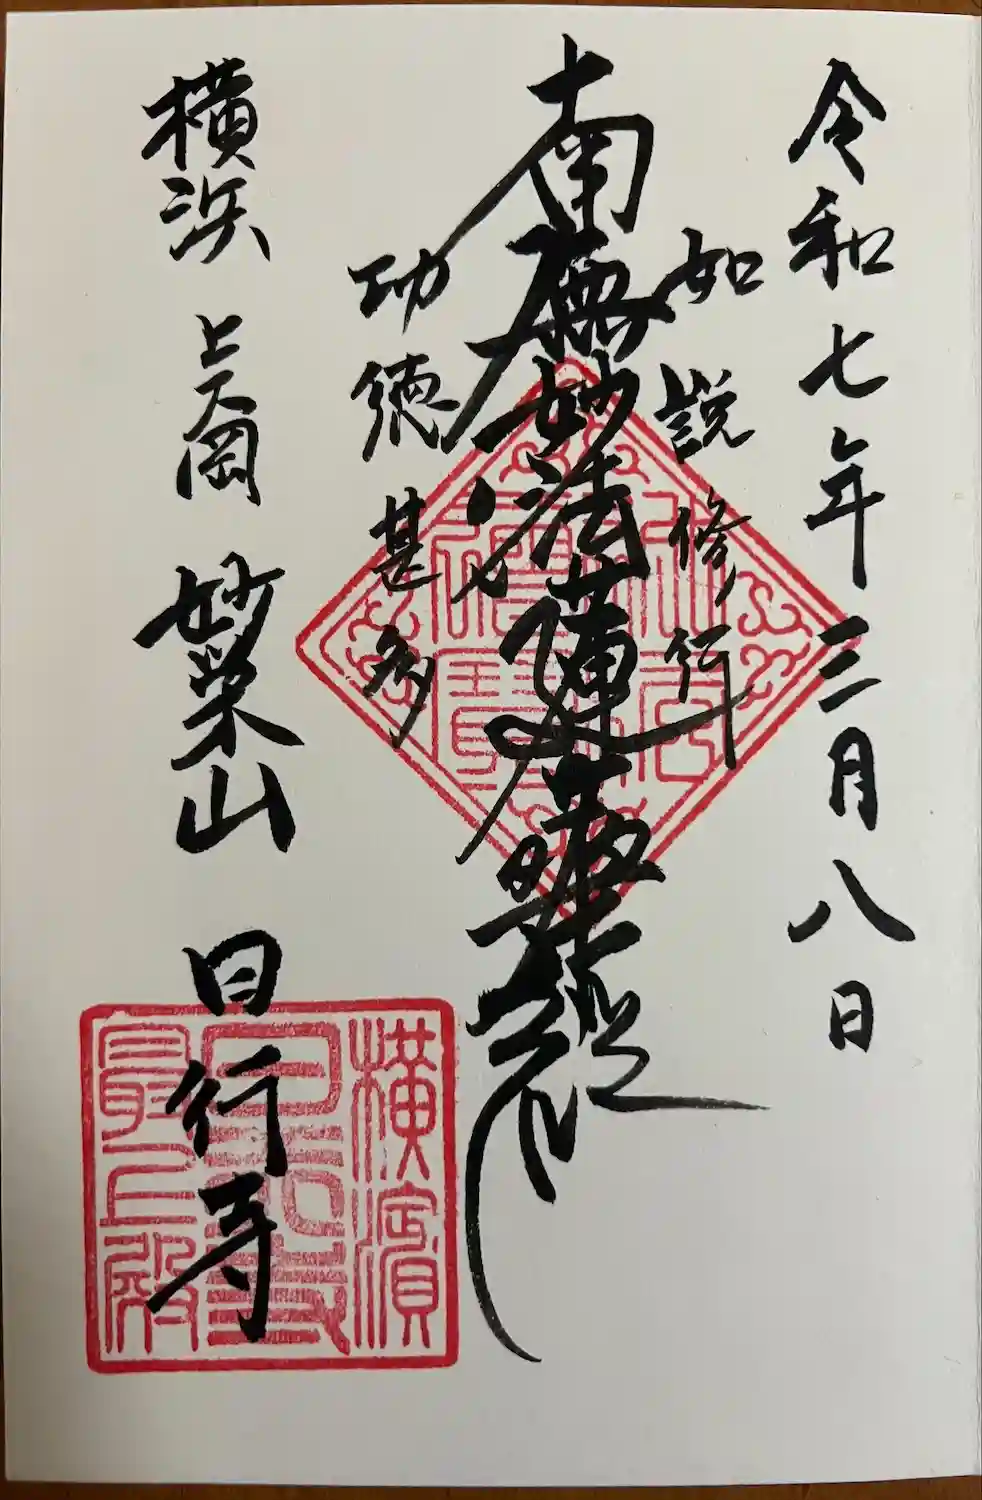 令和七年三月八日
如説修行
南無妙法蓮華経
功徳甚多
横浜 上大岡 妙栄山 日行寺
横濱
日行寺
最上殿